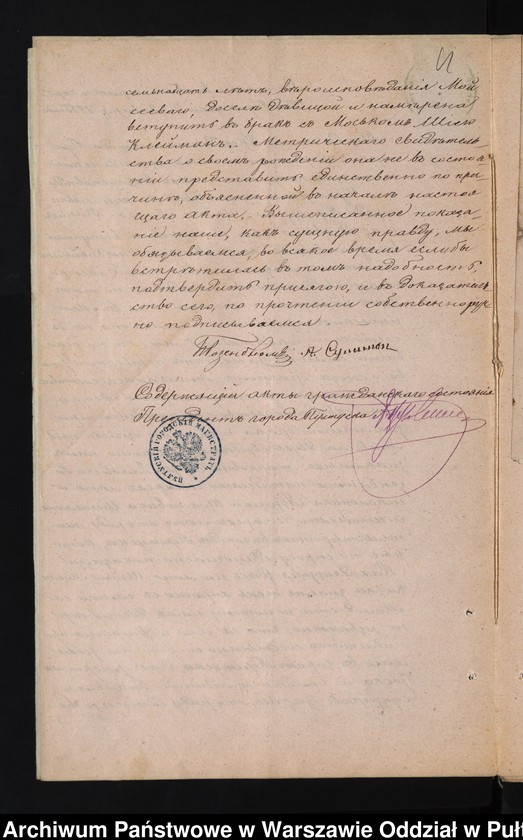 семьнадцать лѣтъ, вѣроисповѣданія Мой
сеева го, доселѣ дѣвицей и намѣрена
вступить въ бракъ съ Моськомъ
Клейманъ. Метрическаго свидѣтель-
ства о своемъ рожденіи она не въ состоя
ніи представить единственно по при-
чинѣ, объясненной въ началѣ настоя
щаго акта. Вышеписанное показа-
ніе наше, какъ сущную правду, мы
обязываемся, во всякое время еслибы
встрѣтилась въ томъ надобность,
подтвердить присягою, и въ доказатель
ство сего, по прочтеніи собственнорук
но подписываемся
А.
Содержащій акты гражданскаго состоянія
Президентъ города Пултуска
ПУЛТУСКІЙ ГОРОДСКІЙ МАГИСТРАТЪ
Archiwum Państwowe w Warszawie Oddział w Puł